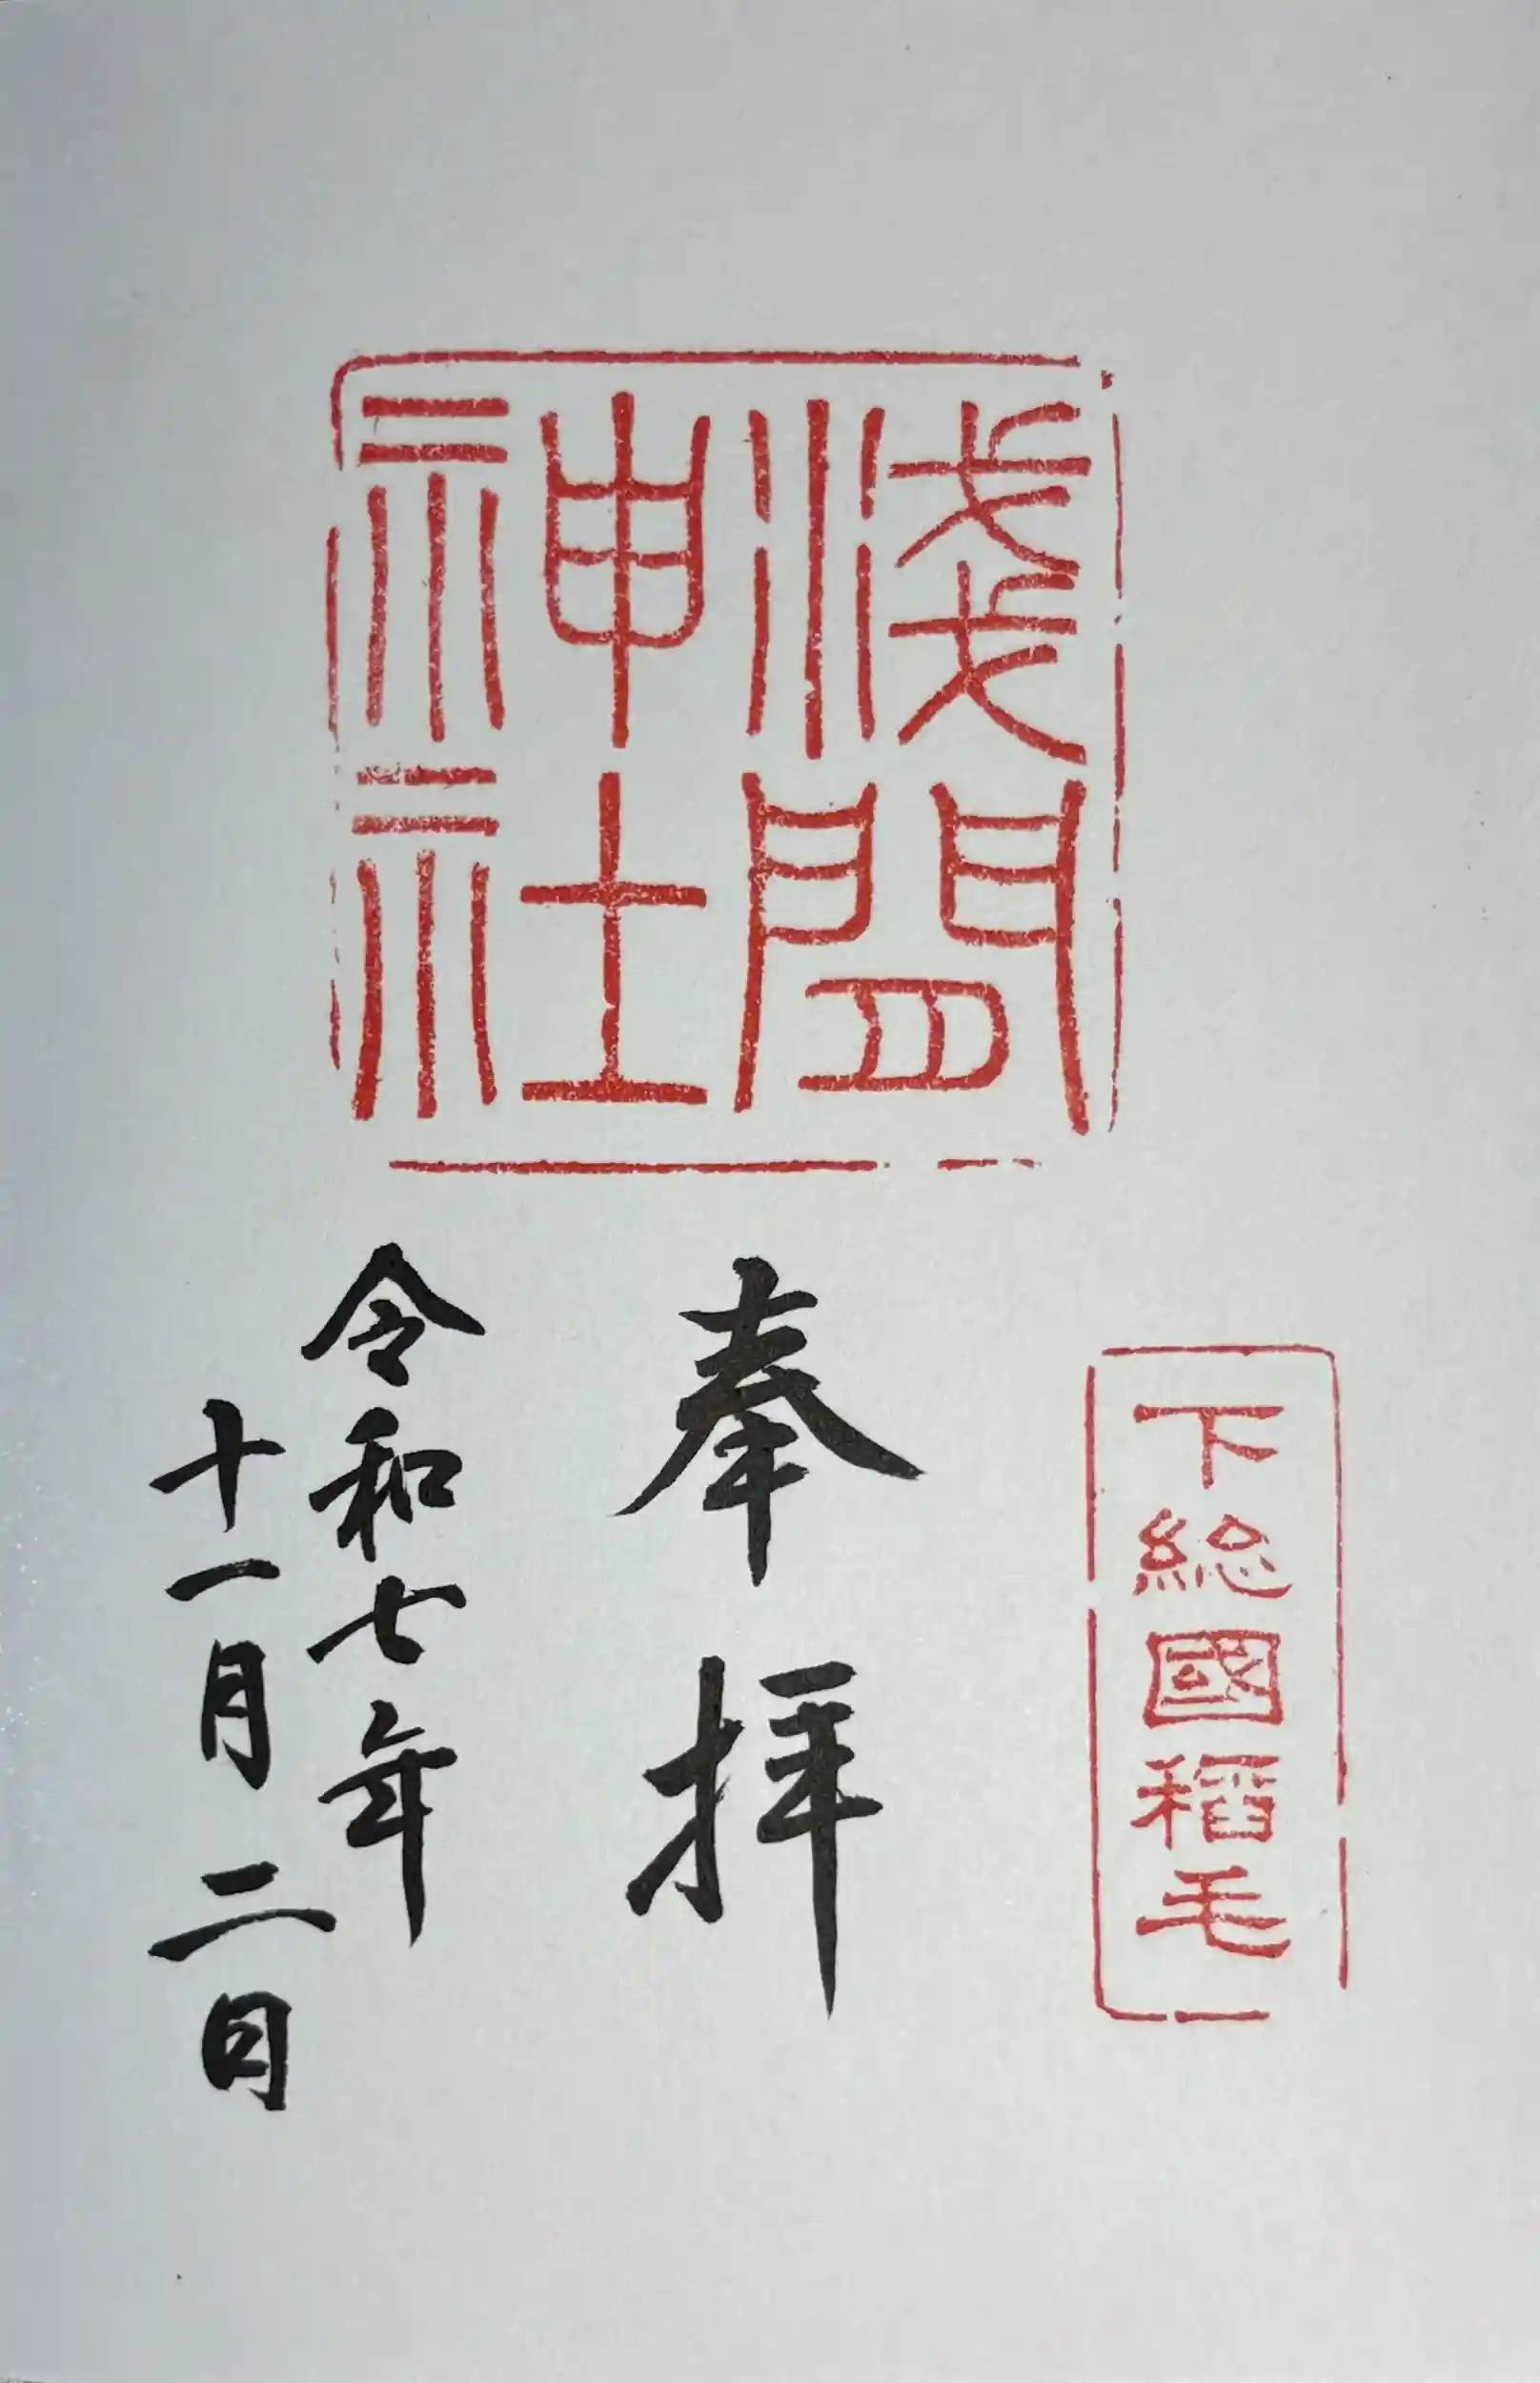 淺間
神社
下総國稻毛
奉拝
令和七年
十一月二日